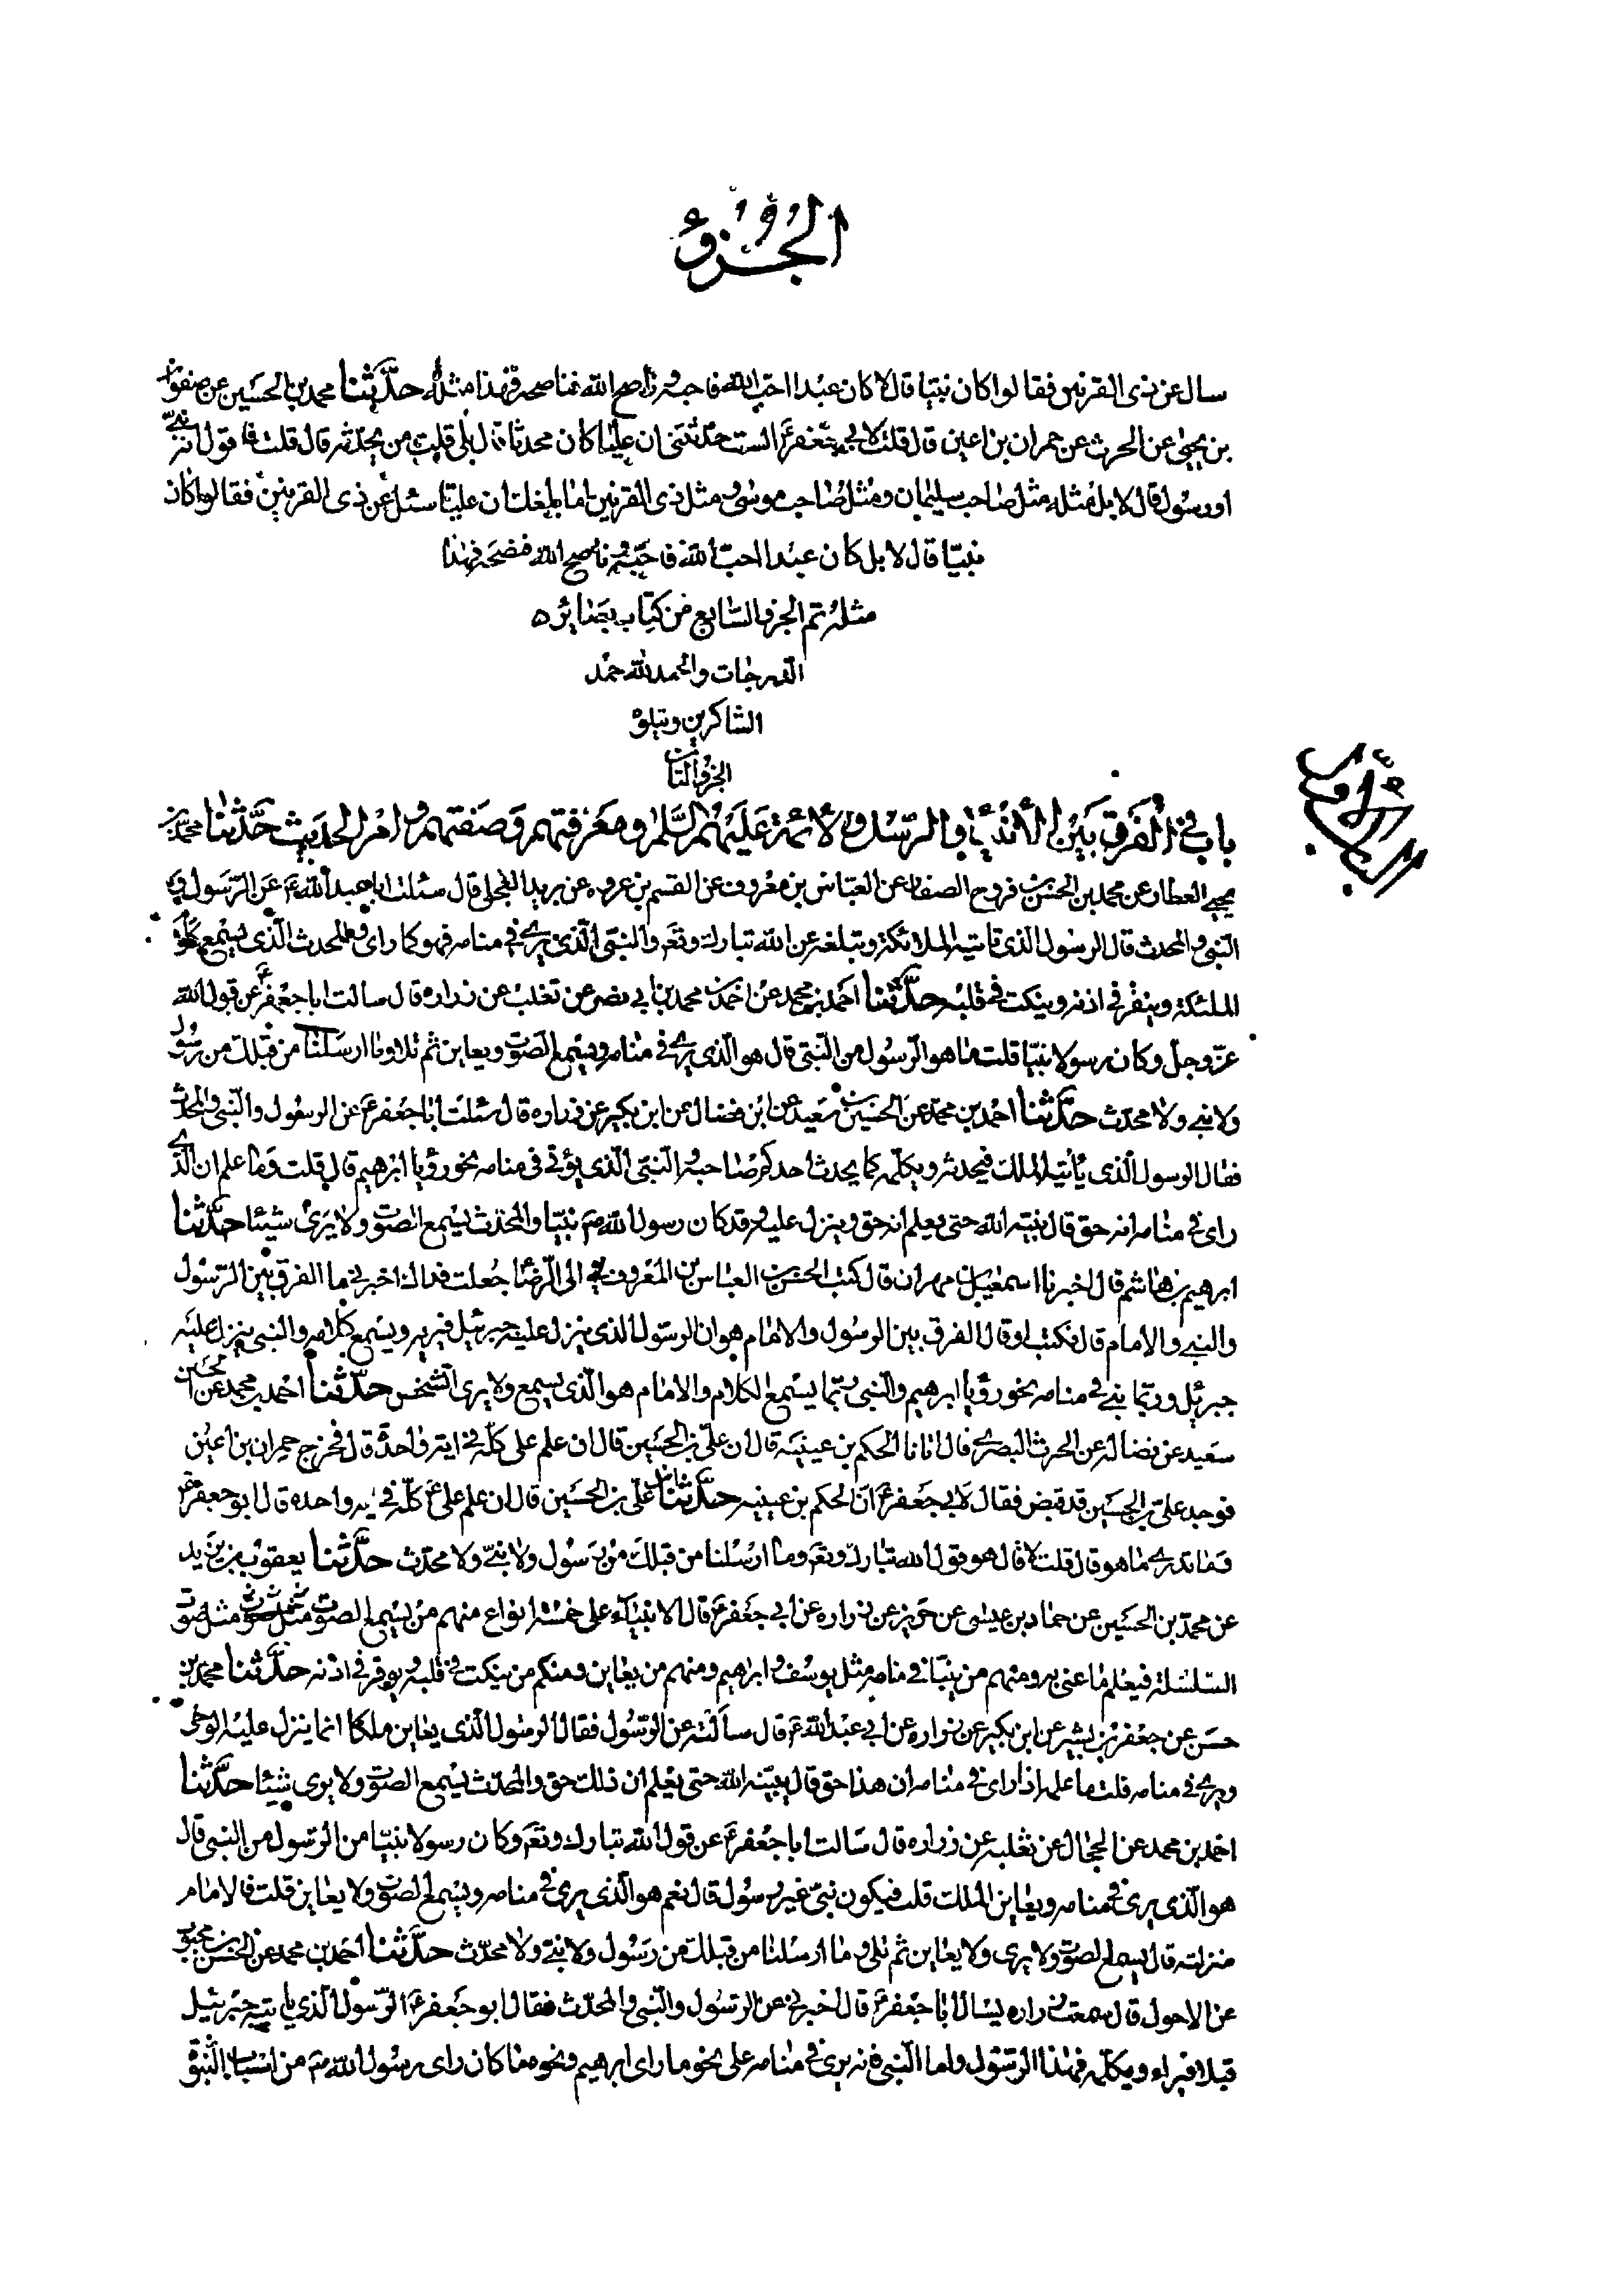 الجزو
سال عن ذى القرنين فقالوا كان نبيا قال لا كان عبدا احب الله فاحبه و ناصح الله فناصحه فهذا مثله حدثنا محمد بن الحسين عن صفوان
بن يحيى عن الحرث عن حمران بن اعين قال قلت لابى جعفر ع الست حدثتنى ان عليا كان محدثا قال بلى قلت من يحدثه قال قلت فاقول انه نبى
او رسول قال لا بل مثله مثل صاحب سليمان ومثل صاحب موسى و مثل ذى القرنين اما بلغك ان عليا سئل عن ذى القرنين فقالوا كان
نبيا قال لا بل كان عبدا احب الله فاحبه و ناصح الله فنصحه فهذا
مثله تم الجزو السابع من كتاب بصائر ه
الدرجات والحمد لله حمد
الشاكرين ويتلوه
الجزو الثامن
الجزو الثامن
باب فى الفرق بين الأنبياء و الرسل و الأئمة عليهم السلم و معرفتهم و صفتهم و امر الحديث حدثنا محمد بن
يحيى العطار عن محمد بن الحسن بن فروخ الصفار عن العباس بن معروف عن القسم بن عروه عن بريد العجلى قال سئلت ابا عبد الله ع عن الرسول و
النبى و المحدث قال الرسول الذى تاتيه الملائكة و تبلغه عن الله تبارك و تعـ والنبى الذى يرى فى منامه فهو كما راى و المحدث الذى يسمع كلام
الملئكة و ينقر فى اذنه و ينكت فى قلبه حدثنا احمد بن محمد عن احمد بن محمد بن ابى نصر عن تغلب عن زراره قال سالت ابا جعفر ع عن قول الله
عز وجل و كان رسولا نبيا قلت ما هو الرسول من النبى قال هو الذى يرى فى منامه و يسمع الصوت و يعاين ثم تلا وما ارسلنا من قبلك من رسول
ولا نبى ولا محدث حدثنا احمد بن محمد عن الحسين بن سعيد عن ابن فضال عن ابن بكير عن زراره قال سئلت ابا جعفر ع عن الرسول والنبى والمحدث
فقال الرسول الذى يأتيه الملك فيحدثه و يكلمه كما يحدث احدكم صاحبه و النبى الذى يؤتى فى منامه نحو رؤيا ابرهيم قال قلت وما علم ان الذى
راى فى منامه انه حق قال بينه الله حتى يعلم انه حق و ينزل عليه و قد كان رسول الله ص نبيا والمحدث يسمع الصوت ولا يرى شيئا حدثنا
ابرهيم بن هاشم قال اخبرنا اسمعيل بن مهران قال كتب الحسن بن العباس بن المعروفى الى الرضا جعلت فداك اخبرنى ما الفرق بين الرسول
والنبى والامام قال فكتب او قال الفرق بين الرسول والامام هو ان الرسول الذى ينزل عليه جبرئيل فيريه و يسمع كلامه والنبى ينزل عليه
جبرئيل و ربما نبى فى منامه نحو رؤيا ابرهيم والنبى ربما يسمع الكلام والامام هو الذى يسمع ولا يرى الشخص حدثنا احمد بن محمد عن الحسين بن
سعيد عن فضاله عن الحرث البصرى قال اتانا الحكم بن عيينه قال ان على بن الحسين قال ان علم على كله فى ايه واحدة قال فخرج حمران بن اعين
فوجد على بن الحسين قد قبض فقال لابى جعفر ع ان الحكم بن عيينه حدثنا ان على بن الحسين قال ان علم على ع كله فى ايه واحده قال ابو جعفر ع
فما تدرى ما هو قال قلت لا قال هو قول الله تبارك و تعـ وما ارسلنا من قبلك من رسول ولا نبى ولا محدث حدثنا يعقوب بن يزيد
عن محمد بن الحسين عن حماد بن عيسى عن حريز عن زراره عن ابى جعفر ع قال الانبياء على خمسة انواع منهم من يسمع الصوت مثل صوت
السلسلة فيعلم ما عنى به و منهم من ينبا فى منامه مثل يوسف و ابرهيم و منهم من يعاين و منكم من ينكت فى قلبه و يوقر فى اذنه حدثنا محمد بن
حسن عن جعفر بن بشير عن ابن بكير عن زراره عن ابى عبد الله ع قال سألته عن الرسول فقال الرسول الذى يعاين ملكا انما ينزل عليه الوحى
و يرى فى منامه قلت ما علمه اذا راى فى منامه ان هذا حق قال يبينه الله حتى يعلم ان ذلك حق والمحدث يسمع الصوت ولا يرى شيئا حدثنا
احمد بن محمد عن الحجال عن ثعلبه عن زراره قال سالت ابا جعفر ع عن قول الله تبارك و تعـ و كان رسولا نبيا من الرسول من النبى قال
هو الذى يرى فى منامه و يعاين الملك قلت فيكون نبى غير رسول قال نعم هو الذى يرى فى منامه و يسمع الصوت ولا يعاين قلت فالامام ما
منزلته قال يسمع الصوت ولا يرى ولا يعاين ثم تلى وما ارسلنا من قبلك من رسول ولا نبى ولا محدث حدثنا احمد بن محمد عن الحسن بن محبوب
عن الاحول قال سمعت زراره يسال ابا جعفر ع قال اخبرنى عن الرسول والنبى والمحدث فقال ابو جعفر ع الرسول الذى ياتيه جبرئيل
قبلا فيراه و يكلمه فهذا الرسول و اما النبى فانه يرى فى منامه على نحو ما راى ابرهيم و نحو ما كان راى رسول الله ص من اسباب النبوة